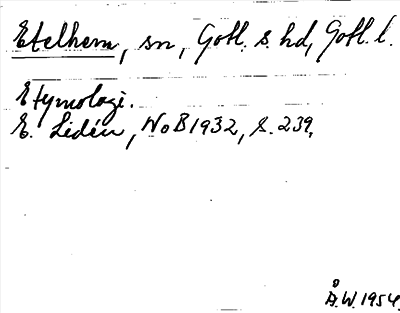 Etelhem, sn, Gotl. s. hd, Gotl. l.
Etymologi.
E. Lidén, NoB 1932, s. 239.
Å.W. 1954.